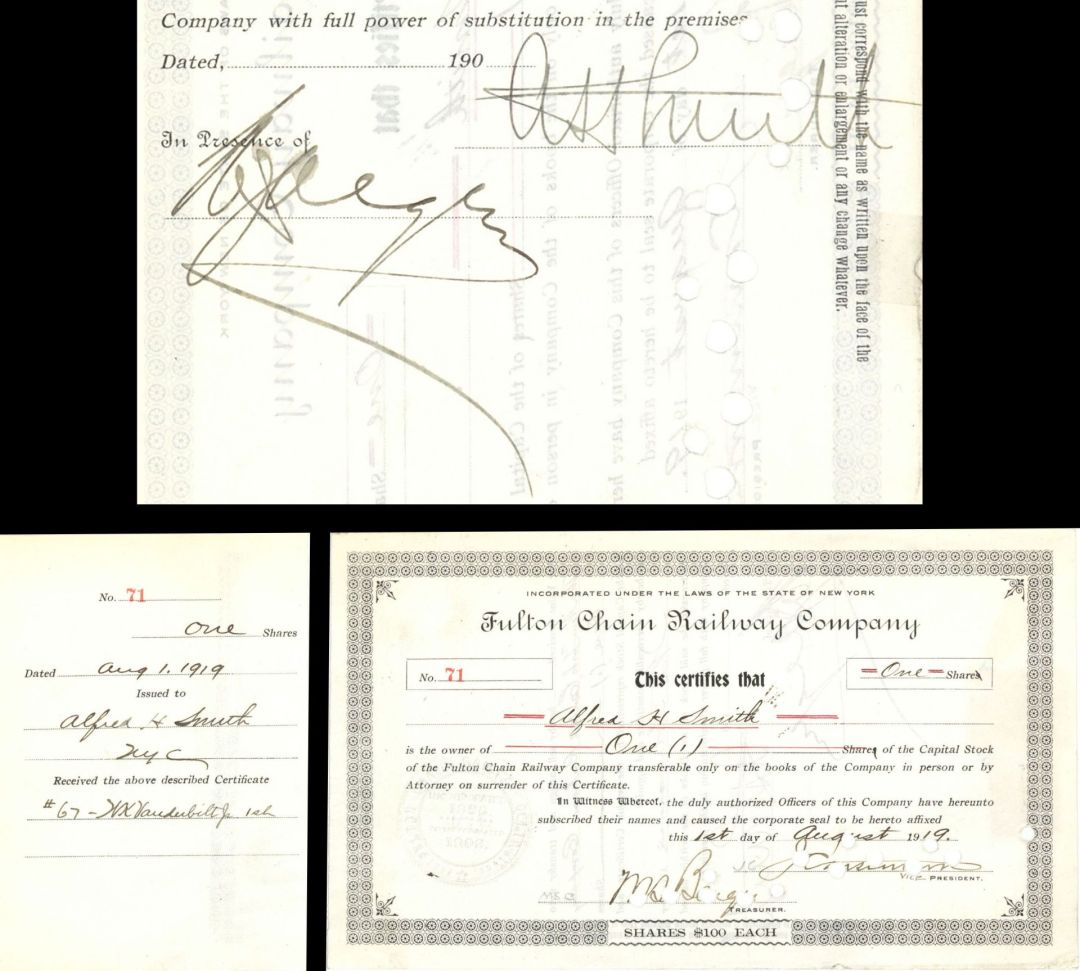 Company with full power of substitution in the premises
Dated, 190
In Presence of
ust correspond with the name as written upon the face of the
t alteration or enlargement or any change whatever.
No. 71
One Shares
Dated Aug 1. 1919
Issued to
Alfred H Smith
NYC
Received the above described Certificate
#67 - WK Vanderbilt Jr 1sh
INCORPORATED UNDER THE LAWS OF THE STATE OF NEW YORK
Fulton Chain Railway Company
No. 71
This certifies that
One Shares
Alfred H Smith
is the owner of One (1) Shares of the Capital Stock
of the Fulton Chain Railway Company transferable only on the books of the Company in person or by
Attorney on surrender of this Certificate.
In Witness Whereof, the duly authorized Officers of this Company have hereunto
subscribed their names and caused the corporate seal to be hereto affixed
this 1st day of August 1919.
VICE PRESIDENT.
TREASURER.
SHARES $100 EACH